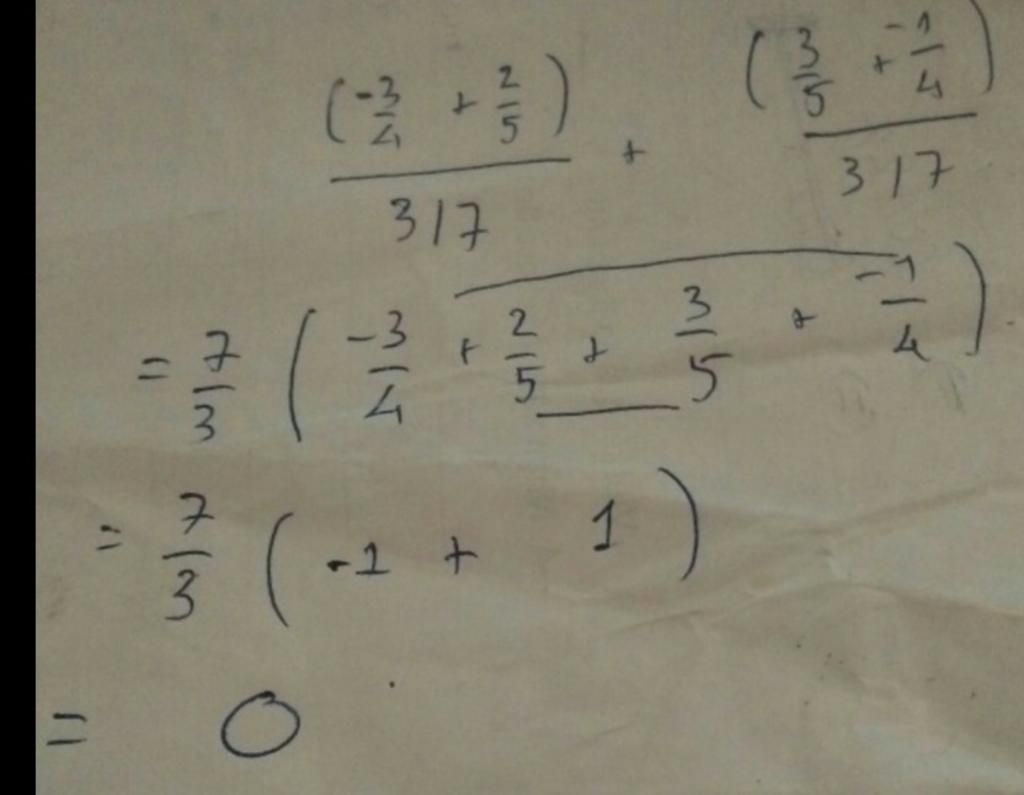 (-3/4 + 2/5) / 3/7 + (3/5 + -1/4) / 3/7
= 7/3 ( -3/4 + 2/5 + 3/5 + -1/4 )
= 7/3 ( -1 + 1 )
= 0